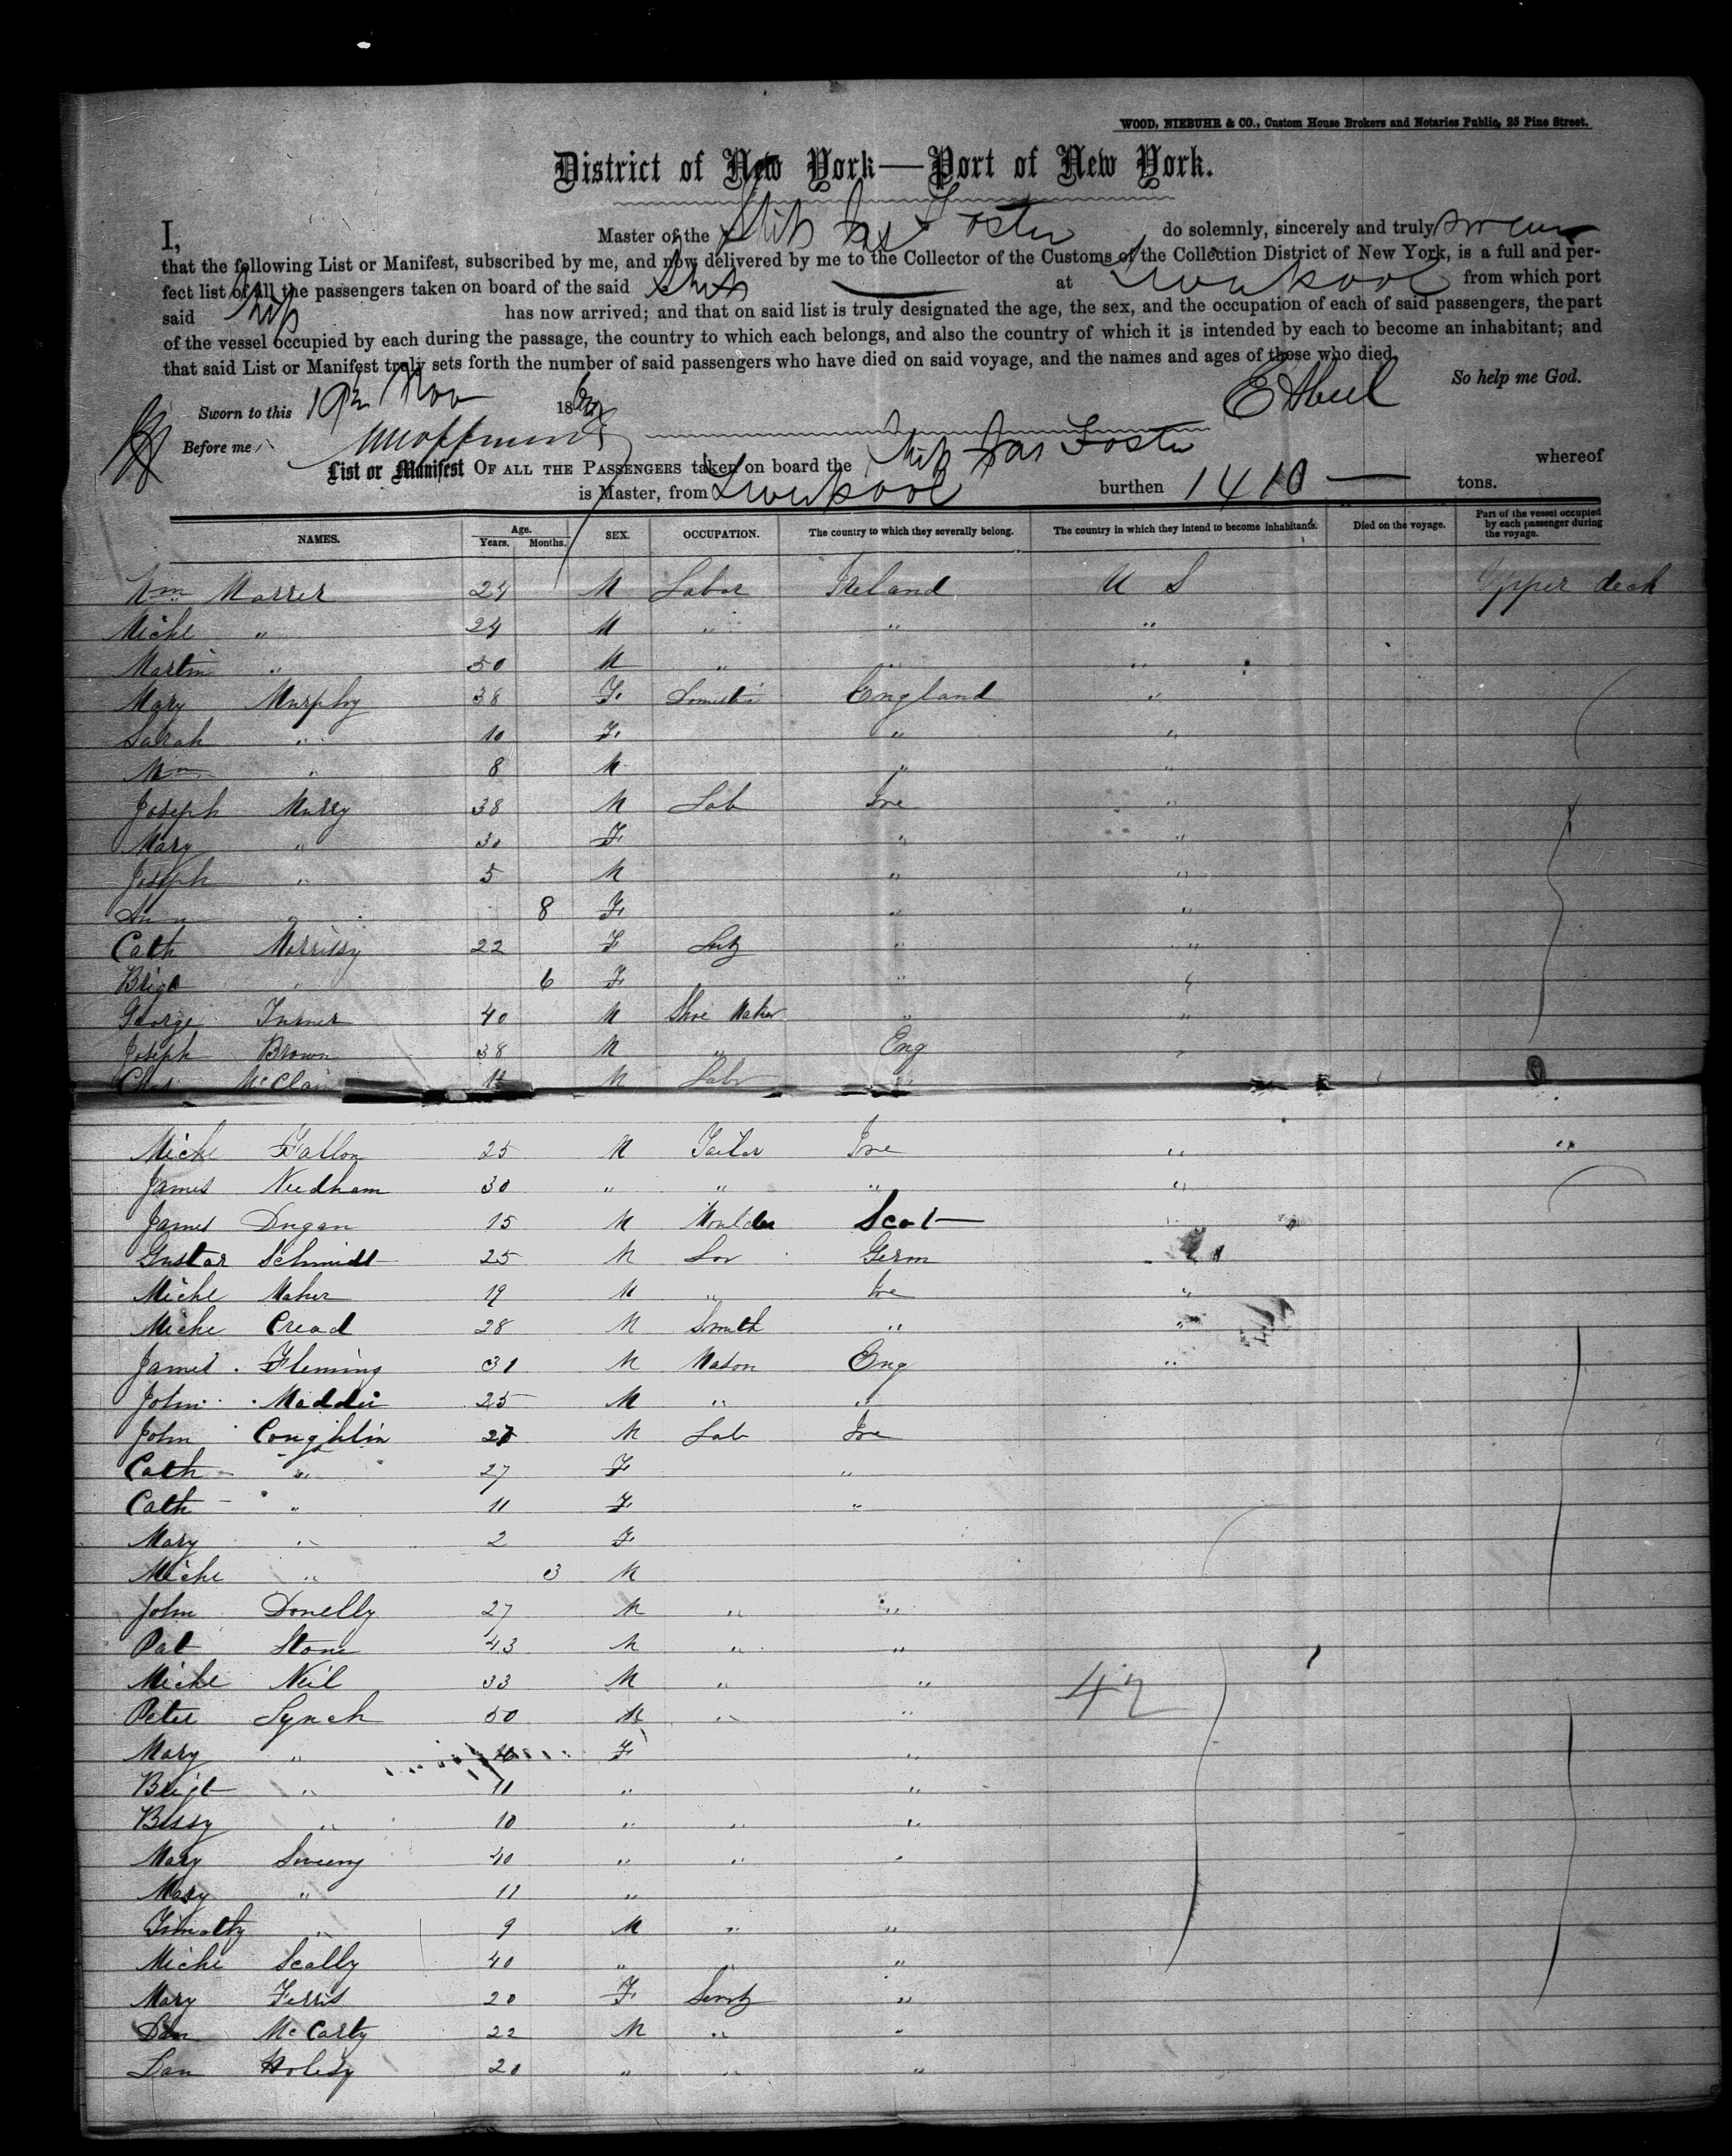 WOOD, NIEBUHR & CO., Custom House Brokers and Notaries Public, 25 Pine Street.
District of New York—Port of New York.
I, Master of the Ship Jas Foster do solemnly, sincerely and truly swear
that the following List or Manifest, subscribed by me, and now delivered by me to the Collector of the Customs of the Collection District of New York, is a full and per-
fect list of all the passengers taken on board of the said Ship at Liverpool from which port
said Ship has now arrived; and that on said list is truly designated the age, the sex, and the occupation of each of said passengers, the part
of the vessel occupied by each during the passage, the country to which each belongs, and also the country of which it is intended by each to become an inhabitant; and
that said List or Manifest truly sets forth the number of said passengers who have died on said voyage, and the names and ages of those who died.
So help me God.
Sworn to this 19th Nov 186
Before me
List or Manifest OF ALL THE PASSENGERS taken on board the Ship Jas Foster whereof
is Master, from Liverpool burthen 1410 — tons.
NAMES. Age. Years. Months. SEX. OCCUPATION. The country to which they severally belong. The country in which they intend to become inhabitants. Died on the voyage. Part of the vessel occupied by each passenger during the voyage.
Wm Marrer 24 M Labor Ireland U S Upper deck
Michl " 24 M " " "
Martin " 50 M " " "
Mary Murphy 38 F. Domestic England "
Sarah " 10 F. " "
Wm " 8 M " "
Joseph Murry 38 M Lab Ire "
Mary " 30 F " "
Joseph " 5 M " "
Ann " 8 F. " "
Cath Morrissy 22 F " "
Brigt " 6 F. " "
George Turner 40 M Shoe Maker " "
Joseph Brown 38 M " Eng "
Chs. McClain M Labr "
Michl Fallon 25 M Tailor Ire " "
James Needham 30 " " " "
James Dugan 15 M Moulder Scot "
Gustav Schmidt 25 M Germ
Michl Maher 19 M " Ire "
Michl Cread 28 M Smith " "
James Fleming 31 M Mason Eng "
John Madden 25 M " "
John Coughlin 27 M Lab Ire
Cath " 27 F "
Cath " 11 F "
Mary " 2 F
Michl " 3 M
John Donelly 27 M " "
Pat Stone 43 M " "
Michl Neil 33 M " " 42
Peter Lynch 50 M " "
Mary " 40 F "
Brigt " 11 " "
Bessy " 10 " " "
Mary Sweeny 40 " " "
Mary " 11 "
Timothy " 9 M " "
Michl Scally 40 " " "
Mary Ferris 20 F Servt "
Dan McCarty 22 M " "
Dan 20 " " "